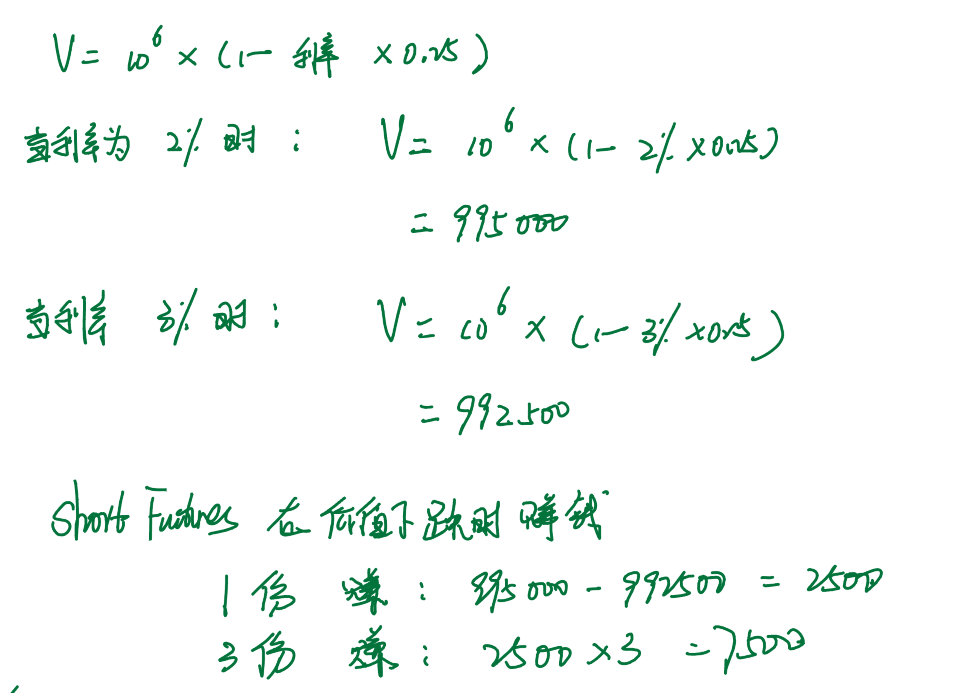 V = 10⁶ × (1 - 利率 × 0.25)
当利率为 2% 时： V = 10⁶ × (1 - 2% × 0.25)
= 995000
当利率 3% 时： V = 10⁶ × (1 - 3% × 0.25)
= 992500
Short Futures 在价值下跌时赚钱
1份 赚： 995000 - 992500 = 2500
3份 赚： 2500 × 3 = 7500